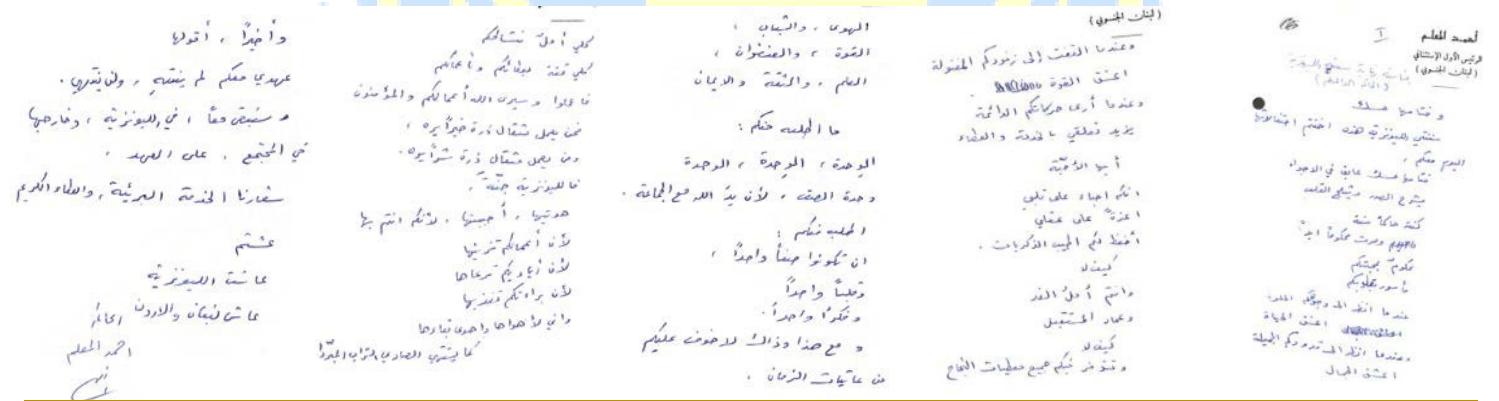 أحمد المعلم
الرئيس الأول الإستثنائي
(لبنان الجنوبي)
I
وختامها مسك
سنتي الليونزية هذه اختتم احتفالاتها
اليوم معكم ،
ختامها مسك عابق في الاجواء
يشرح الصدر ويثلج القلب
كنت حاكماً سنة
وصرت محكوماً ابداً
محكوم بمحبتكم
مأسور بقلوبكم
عندما انظر الى وجوهكم
اعشق الحياة
وعندما انظر الى قدودكم الجميلة
اعشق الجمال
(لبنان الجنوبي)
وعندما التفت إلى زنودكم المفتولة
اعشق القوة
وعندما أرى حركاتكم الدائمة
يزيد تعلقي بالخدمة والعطاء
أيها الأحبّة
انكم احباء على قلبي
اعزة على عقلي
أحفظ لكم اطيب الذكريات .
كيف لا
وانتم أمل الغد
وعماد المستقبل
كيف لا
وتتوفر فيكم جميع معطيات النجاح
الهوى ، والشباب ،
القوة ، والعنفوان ،
العلم ، والثقة والايمان
ما اطلبه منكم :
الوحدة ، الوحدة ، الوحدة
وحدة الصف ، لأن يدُ الله مع الجماعة .
اطلب منكم :
ان تكونوا صفاً واحداً ،
وقلباً واحداً
وفكراً واحداً .
و مع هذا وذاك لا خوف عليكم
من عاتيات الزمان .
كلي أملٌ بنشاطكم
كلي ثقة بعطائكم وبأعمالكم
فاعملوا وسيرى الله أعمالكم والمؤمنون
فمن يعمل مثقال ذرة خيراً يره ،
ومن يعمل مثقال ذرة شراً يره .
فالليونزية جنّة ،
هويتها ، أحببتها ، لأنكم انتم بها
لأن أعمالكم تزينها
لأن أياديكم ترعاها
لأن براءتكم تغذيها
واني لأهواها واهوى لقاءها
كما يشتهي الصادي الشراب المبرّدا
وأخيراً ، أقولها
عهدي معكم لم ينتهِ ، ولن ينتهي .
وسنبقى معاً ، في الليونزية ، وخارجها
في المجتمع ، على العهد ،
شعارنا الخدمة البريئة ، والعطاء الكريم
عشتم
عاشت الليونزية
عاش لبنان والاردن
احمد المعلم